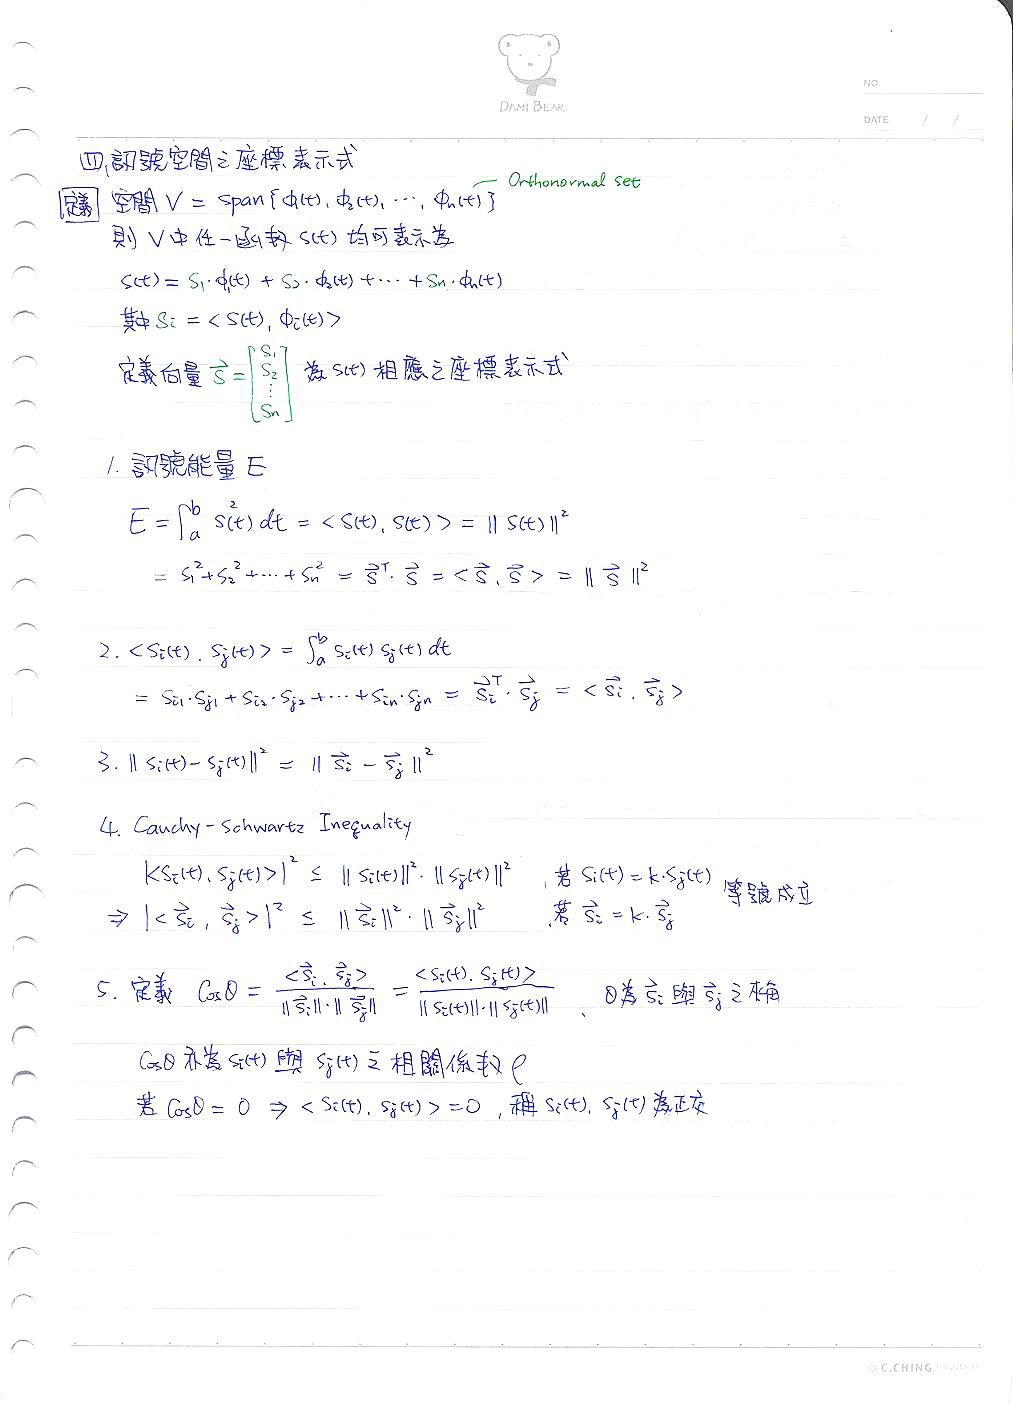 DANI BEAR
NO.
DATE. / /
四、訊號空間之座標表示式
Orthonormal set
定義 空間 V = span{φ₁(t), φ₂(t), ⋯, φₙ(t)}
則 V 中任一函數 s(t) 均可表示為
s(t) = S₁·φ₁(t) + S₂·φ₂(t) + ⋯ + Sₙ·φₙ(t)
其中 Sᵢ = <s(t), φᵢ(t)>
定義向量 s⃗ = [S₁ S₂ ⋮ Sₙ] 為 s(t) 相應之座標表示式
1. 訊號能量 E
E = ∫ₐᵇ s²(t) dt = <s(t), s(t)> = ‖s(t)‖²
= s₁² + s₂² + ⋯ + sₙ² = s⃗ᵀ·s⃗ = <s⃗, s⃗> = ‖s⃗‖²
2. <sᵢ(t), sⱼ(t)> = ∫ₐᵇ sᵢ(t) sⱼ(t) dt
= sᵢ₁·sⱼ₁ + sᵢ₂·sⱼ₂ + ⋯ + sᵢₙ·sⱼₙ = s⃗ᵢᵀ·s⃗ⱼ = <s⃗ᵢ, s⃗ⱼ>
3. ‖sᵢ(t) − sⱼ(t)‖² = ‖s⃗ᵢ − s⃗ⱼ‖²
4. Cauchy-Schwartz Inequality
|<sᵢ(t), sⱼ(t)>|² ≤ ‖sᵢ(t)‖²·‖sⱼ(t)‖² , 若 sᵢ(t) = k·sⱼ(t) 等號成立
⇒ |<s⃗ᵢ, s⃗ⱼ>|² ≤ ‖s⃗ᵢ‖²·‖s⃗ⱼ‖² , 若 s⃗ᵢ = k·s⃗ⱼ
5. 定義 cosθ = <s⃗ᵢ, s⃗ⱼ> / ‖s⃗ᵢ‖·‖s⃗ⱼ‖ = <sᵢ(t), sⱼ(t)> / ‖sᵢ(t)‖·‖sⱼ(t)‖ 、 θ為 s⃗ᵢ 與 s⃗ⱼ 之
cosθ 亦為 sᵢ(t) 與 sⱼ(t) 之相關係數 ρ
若 cosθ = 0 ⇒ <sᵢ(t), sⱼ(t)> = 0 , 稱 sᵢ(t), sⱼ(t) 為正交
C.CHING PRODUCTS